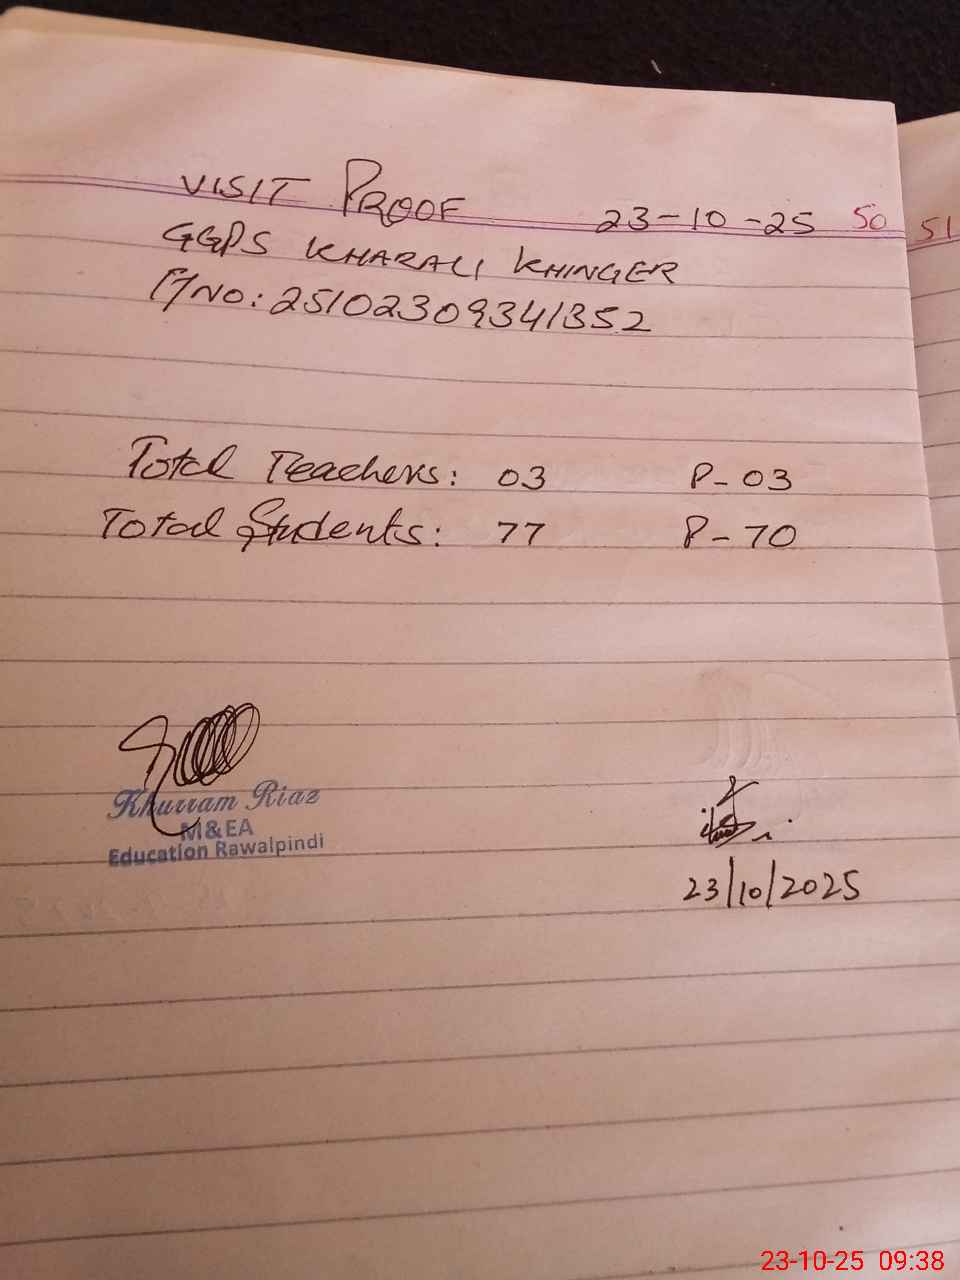 VISIT PROOF 23-10-25 50 51
GGPS KHARALI KHINGER
P/NO: 25102309341352
Total Teachers: 03 P-03
Total Students: 77 P-70
Khurram Riaz
M&EA
Education Rawalpindi
23/10/2025
23-10-25 09:38